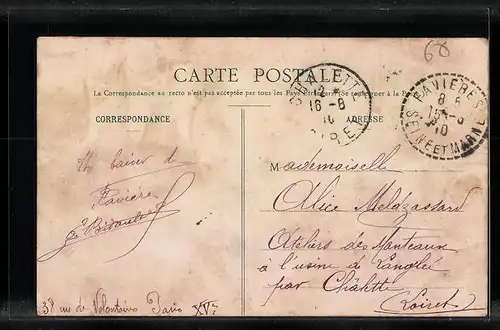 68
CARTE POSTALE
La Correspondance au recto n'est pas acceptée par tous les Pays étrangers (Se renseigner à la Poste)
CORRESPONDANCE
ADRESSE
16-8
10
FAVIERES
8 5
15-8
10
SEINE ET MARNE
Un baiser de
Favière
Mademoiselle
Alice
Ateliers des Manteaux
à l'usine de Langlée
par Châlette
Loiret
38 rue de Volontaires Paris XVe